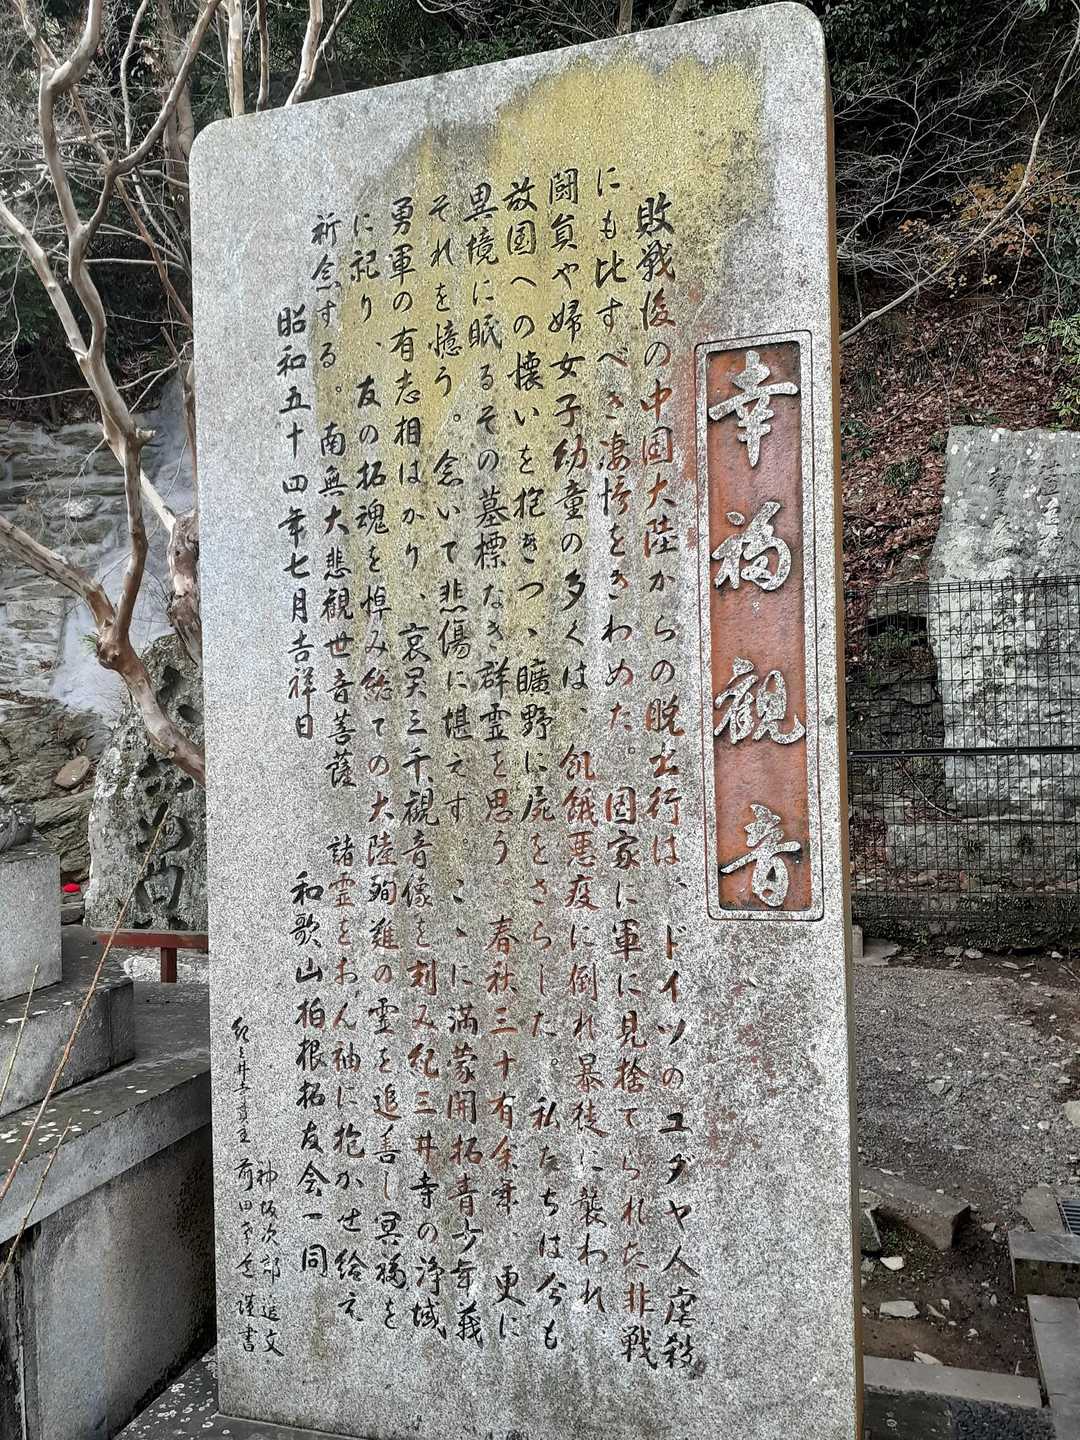 幸福観音
敗戦後の中国大陸からの脱出行は、ドイツのユダヤ人虐殺
にも比すべき凄惨をきわめた。国家に軍に見捨てられた非戦
闘員や婦女子幼童の多くは、飢餓悪疫に倒れ暴徒に襲われ
故国への懐いを抱きつゝ曠野に屍をさらした。私たちは今も
異境に眠るその墓標なき群霊を思う。春秋三十有余年、更に
それを憶う。念いて悲傷に堪えず。こゝに満蒙開拓青少年義
勇軍の有志相はかり、哀哭三千、観音像を刻み紀三井寺の浄域
に祀り、友の拓魂を悼み総ての大陸殉難の霊を追善し冥福を
祈念する。南無大悲観世音菩薩 諸霊をおん袖に抱かせ給え
昭和五十四年七月吉祥日 和歌山柏根拓友会一同
神坂次郎 追文
紀三井寺主 前田 謹書